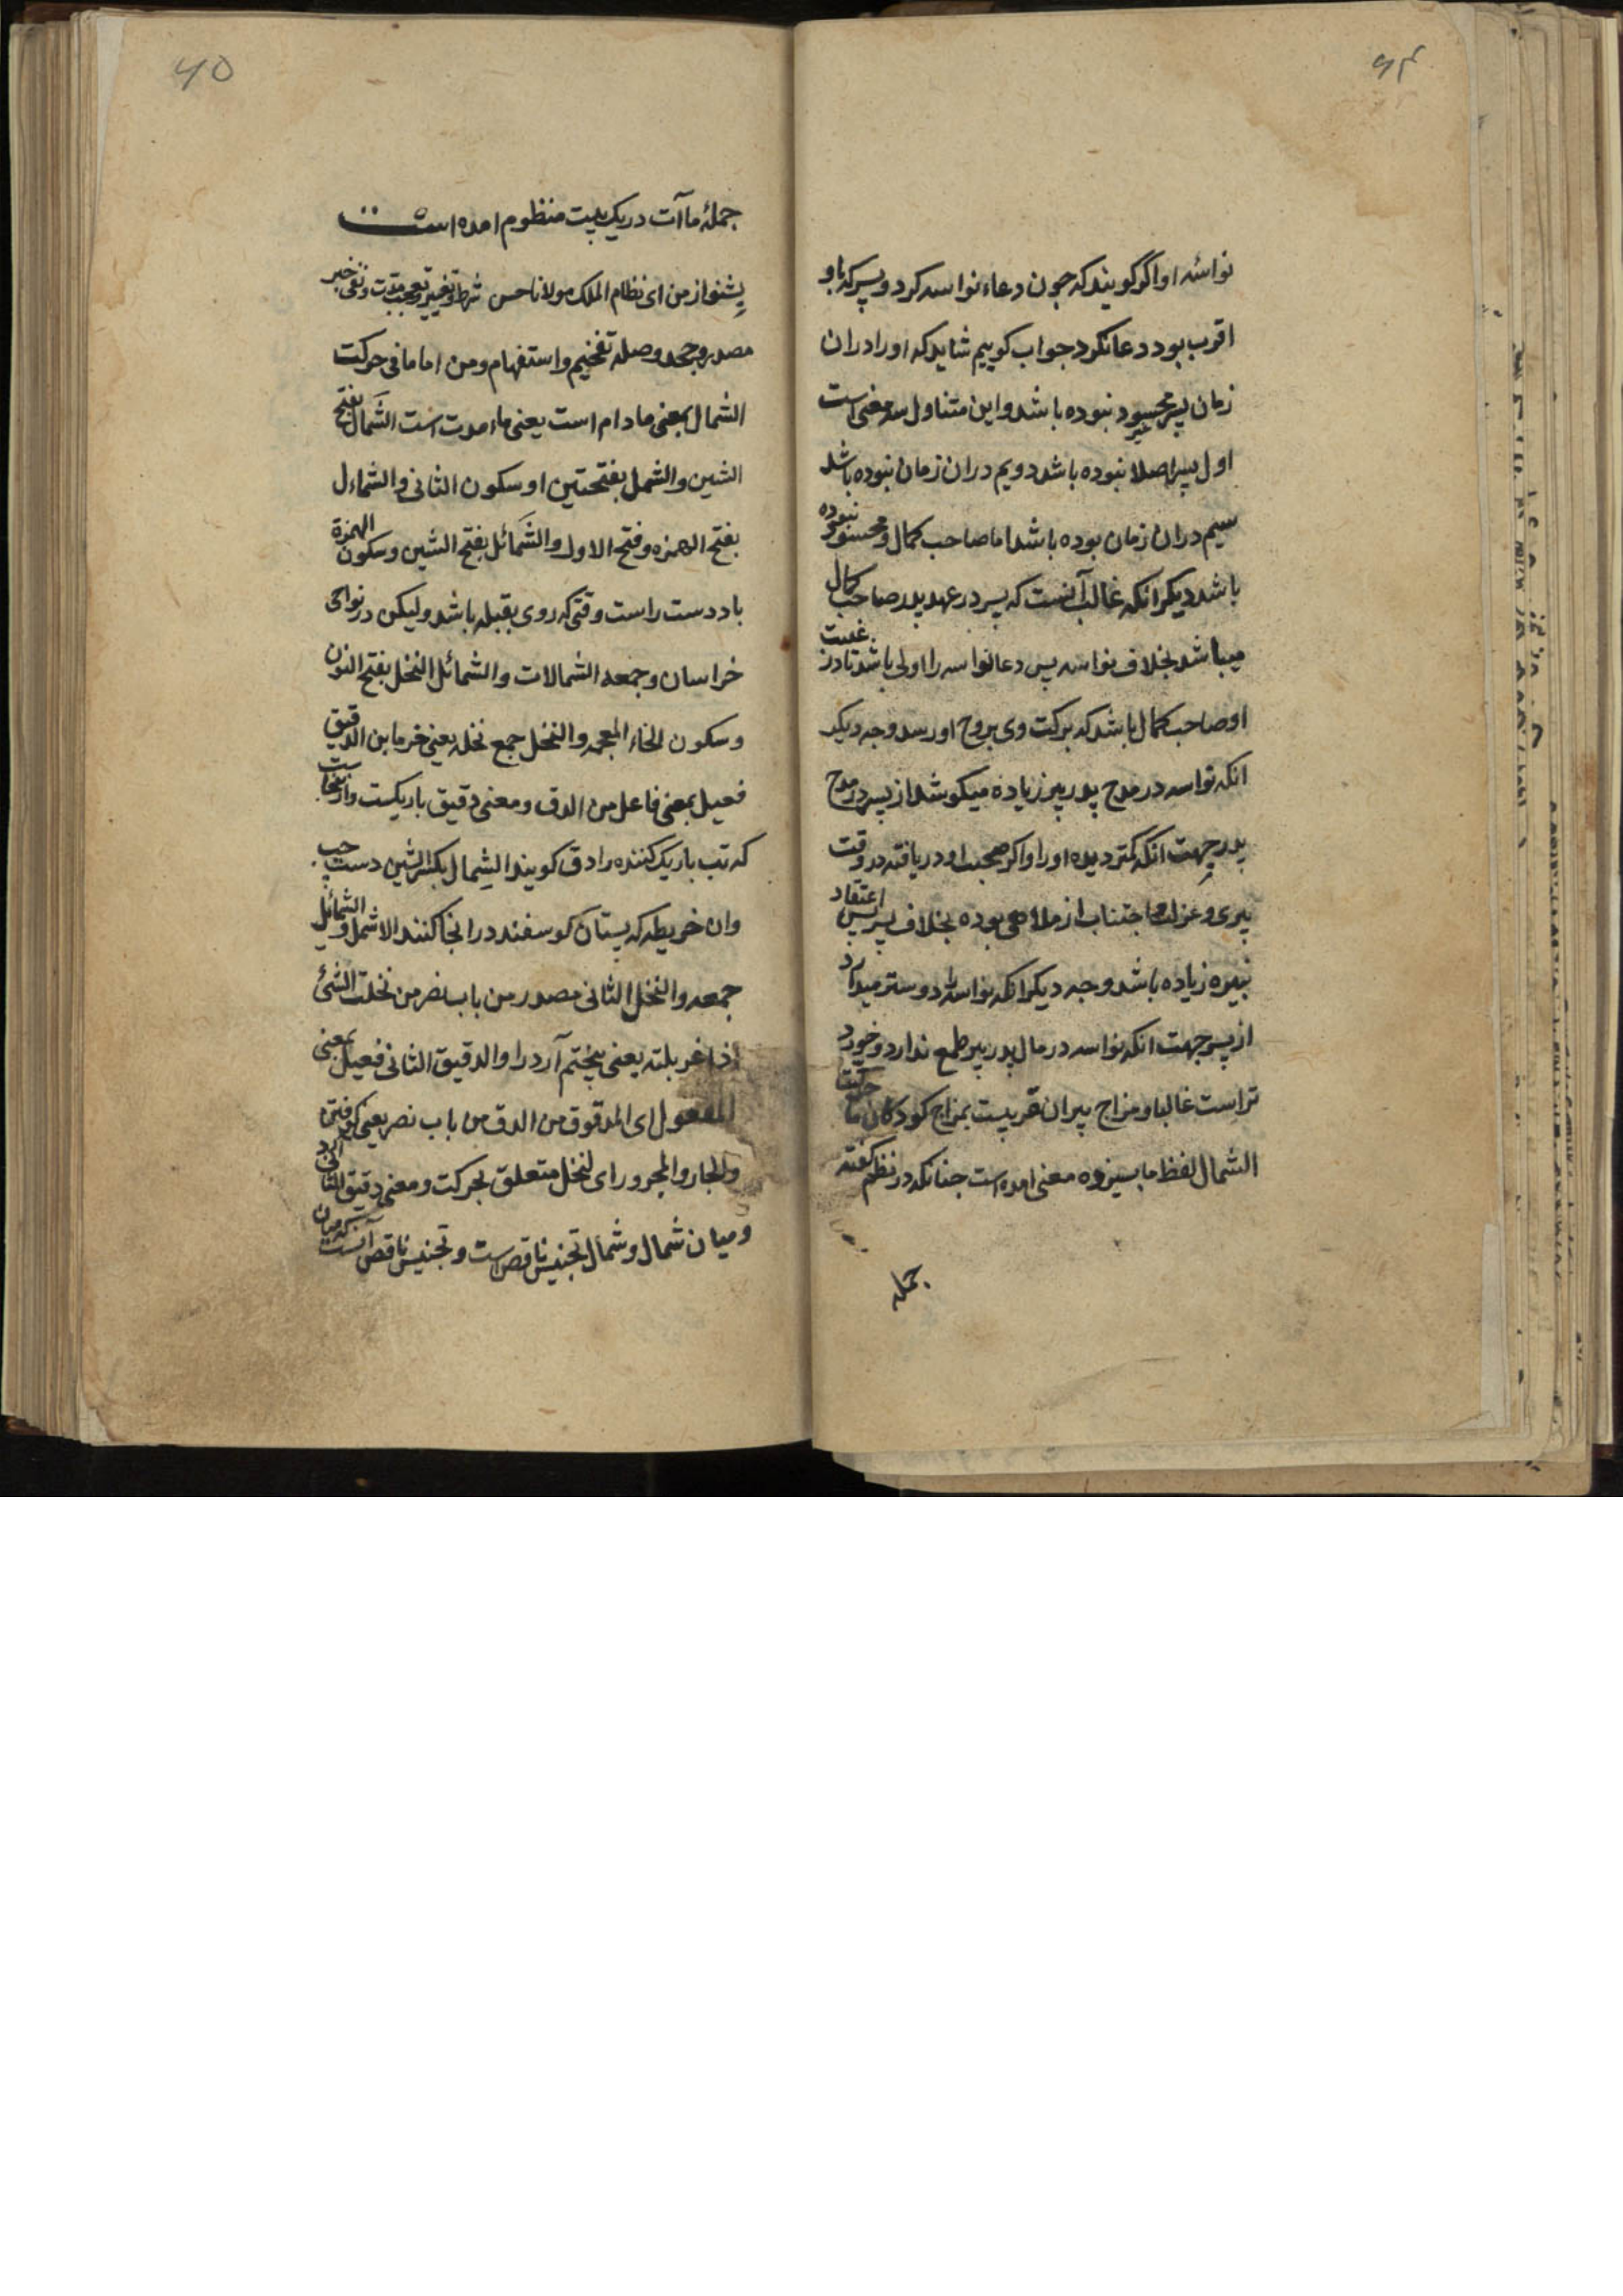 ۶۴
نواسهٔ او اگر گویند که چون دعاء نواسه کرد و پسر که باو
اقرب بود دعا نکرد جواب کوییم شاید که او را دران
زمان پسر محسود نبوده باشد و این متناول سه معنی است
اول پسر اصلا نبوده باشد دویم دران زمان نبوده باشد
سیم دران زمان بوده باشد اما صاحب کمال و محسود نبوده
باشد دیکر انکه غالب آنست که پسر در عهد پدر صاحب کمال
میباشد بخلاف نواسه پس دعا نواسه را اولی باشد تا در غیبت
او صاحب کمال باشد که برکت وی بروح او رسد وجه دیکر
انکه نواسه در مدح پدر پیر زیاده میکوشد از پسر در مدح
پدر جهت انکه کمتر دیده او را و اکر صحبت او دریافته در وقت
پیری و عزلت و اجتناب از ملاهی بوده بخلاف پسر پس اعتقاد
نبیره زیاده باشد وجه دیکر انکه نواسه را دوستر میدارد
از پسر جهت انکه نواسه در مال پدر پیر طمع ندارد و خورد
تر است غالبا و مزاج پیران قریبست بمزاج کودکان ما حرکت
الشمال لفظ ما بسیزده معنی امده است جنانکه در نظم کفته
جمله
۶۵
جملهٔ ماآت در یک بیت منظوم امده است
بشنو از من ای نظام الملک مولانا حسن شرط و تغییر و تعجب مدت و نفی خبر
مصدر و جحد و صله تفخیم و استفهام و من اما ما فی حرکت
الشمال بمعنی مادام است یعنی ماء مدت است الشَمال بفتح
الشین والشمل بفتحتین او سکون الثانی والشماءل
بفتح الهمزه وفتح الاول والشَمائل بفتح الشین وسکون الهمزة
باد دست راست وقتی که روی بقبله باشد ولیکن در نواحی
خراسان وجمعه الشمالات والشمائل النخل بفتح النون
وسکون الخاء المعجمه والنخل جمع نخله یعنی خرما بن الدقیق
فعیل بمعنی فاعل من الدق ومعنی دقیق باریکست و ازینجاست
که تب باریک کننده را دق کویند الشِمال بکسر الشین دست چپ
وان خریطه که پستان کوسفند در انجا کنند الاشمل والشمائیل
جمعه والنخل الثانی مصدر من باب نصر من نخلت الشئ
اذا غربلته یعنی بیختم آرد را والدقیق الثانی فعیل بمعنی
المفعول ای المدقوق من الدق من باب نصر یعنی کوفتن
والجار والمجرور ای لنخل متعلق بحرکت ومعنی دقیق الثانی آرد
ومیان شمال و شمال تجنیس ناقص است و تجنیس ناقص آنست که میان